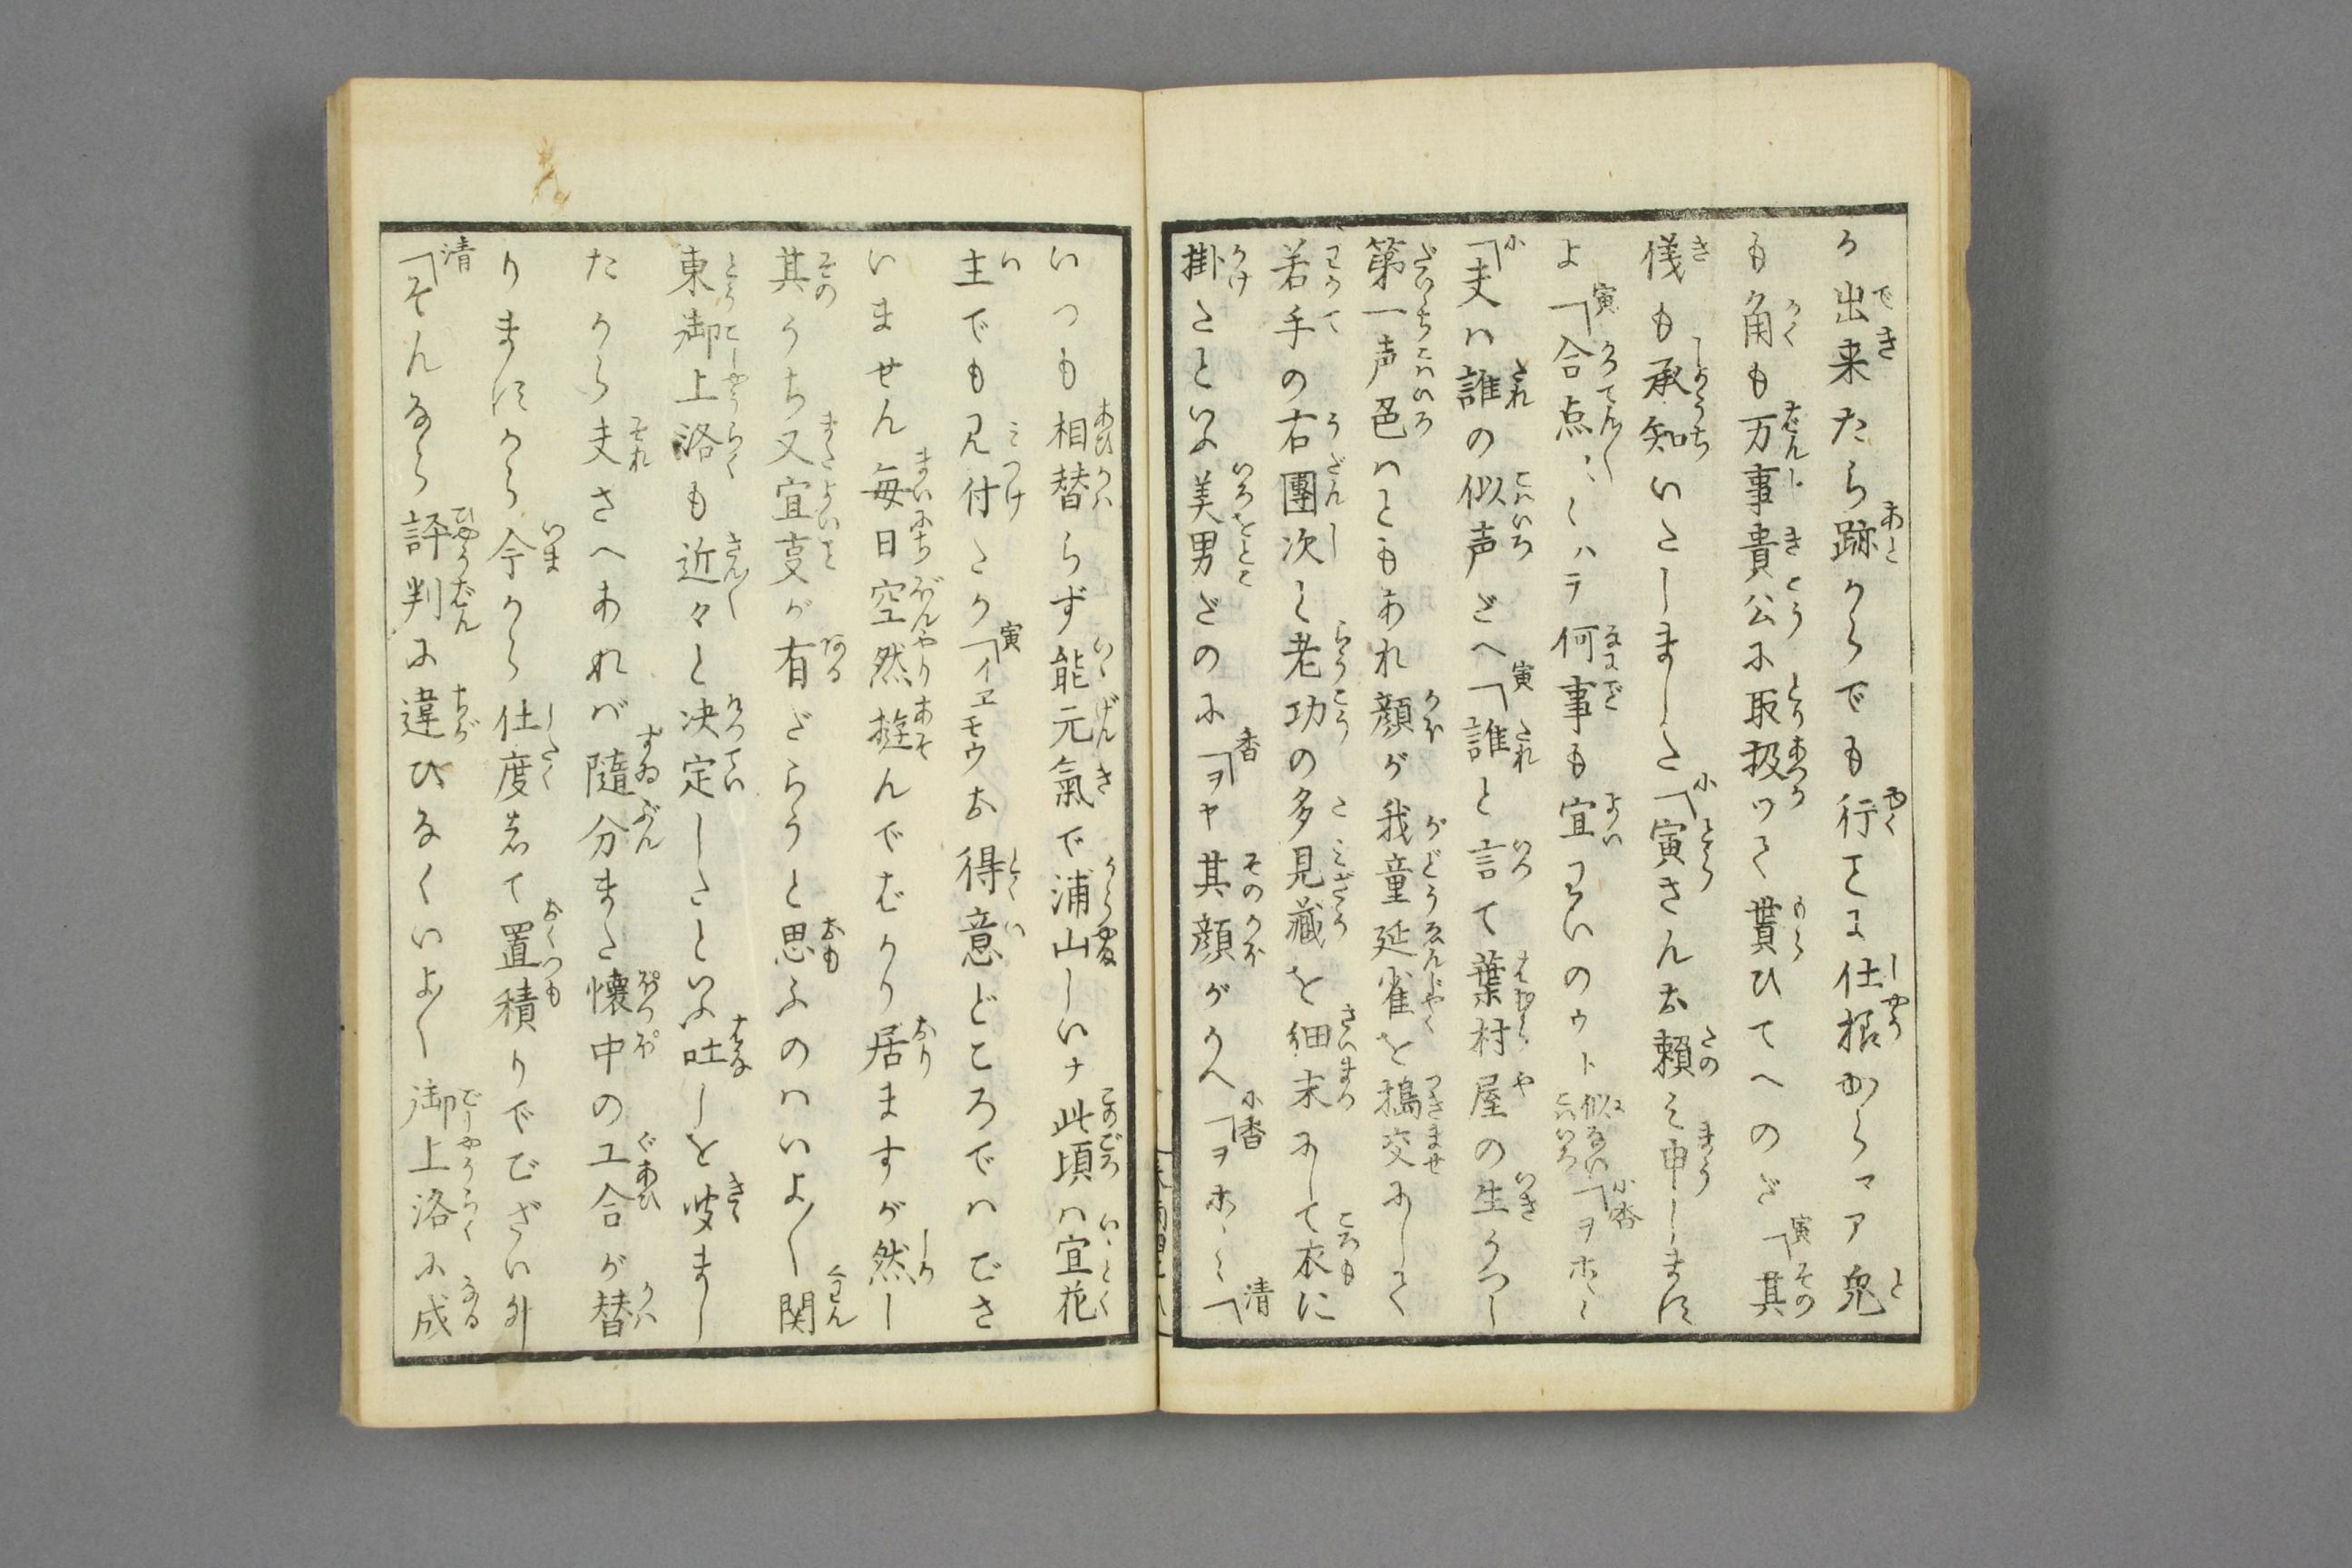 か出来たら跡からでも行とは仕様からマア兎
も角も万事貴公に取扱ツて貰ひてへのだ 寅「其
儀も承知いたしました 小「寅さんお頼み申します
よ 寅「合点〻〻ハテ何事も宜ヨいのウト 似ないこハいろ 小香「ヲホヽヽ
小「夫ハ誰の似声だへ 寅「誰と言て葉村屋の生うつし
第一声色ハともあれ顔が我童延雀を搗交にして
若手の右團次と老功の多見藏を細末にして衣に
掛たといふ美男だのに 香「ヲヤ其顔がかへ 小香「ヲホヽヽ 清「
いつも相替らず能元氣で浦山しいナ此頃ハ宜花
主でも見付たか 寅「イヱモウお得意どころでハござ
いません毎日空然遊んでばかり居ますが然し
其うち又宜事が有だらうと思ふのハいよ〳〵関
東御上洛も近々と決定したといふ吐しを聞まし
たから夫さへあれバ隨分また懐中の工合が替
りますから今から仕度して置積りでございます
清「そんなら評判に違ひなくいよ〳〵御上洛に成